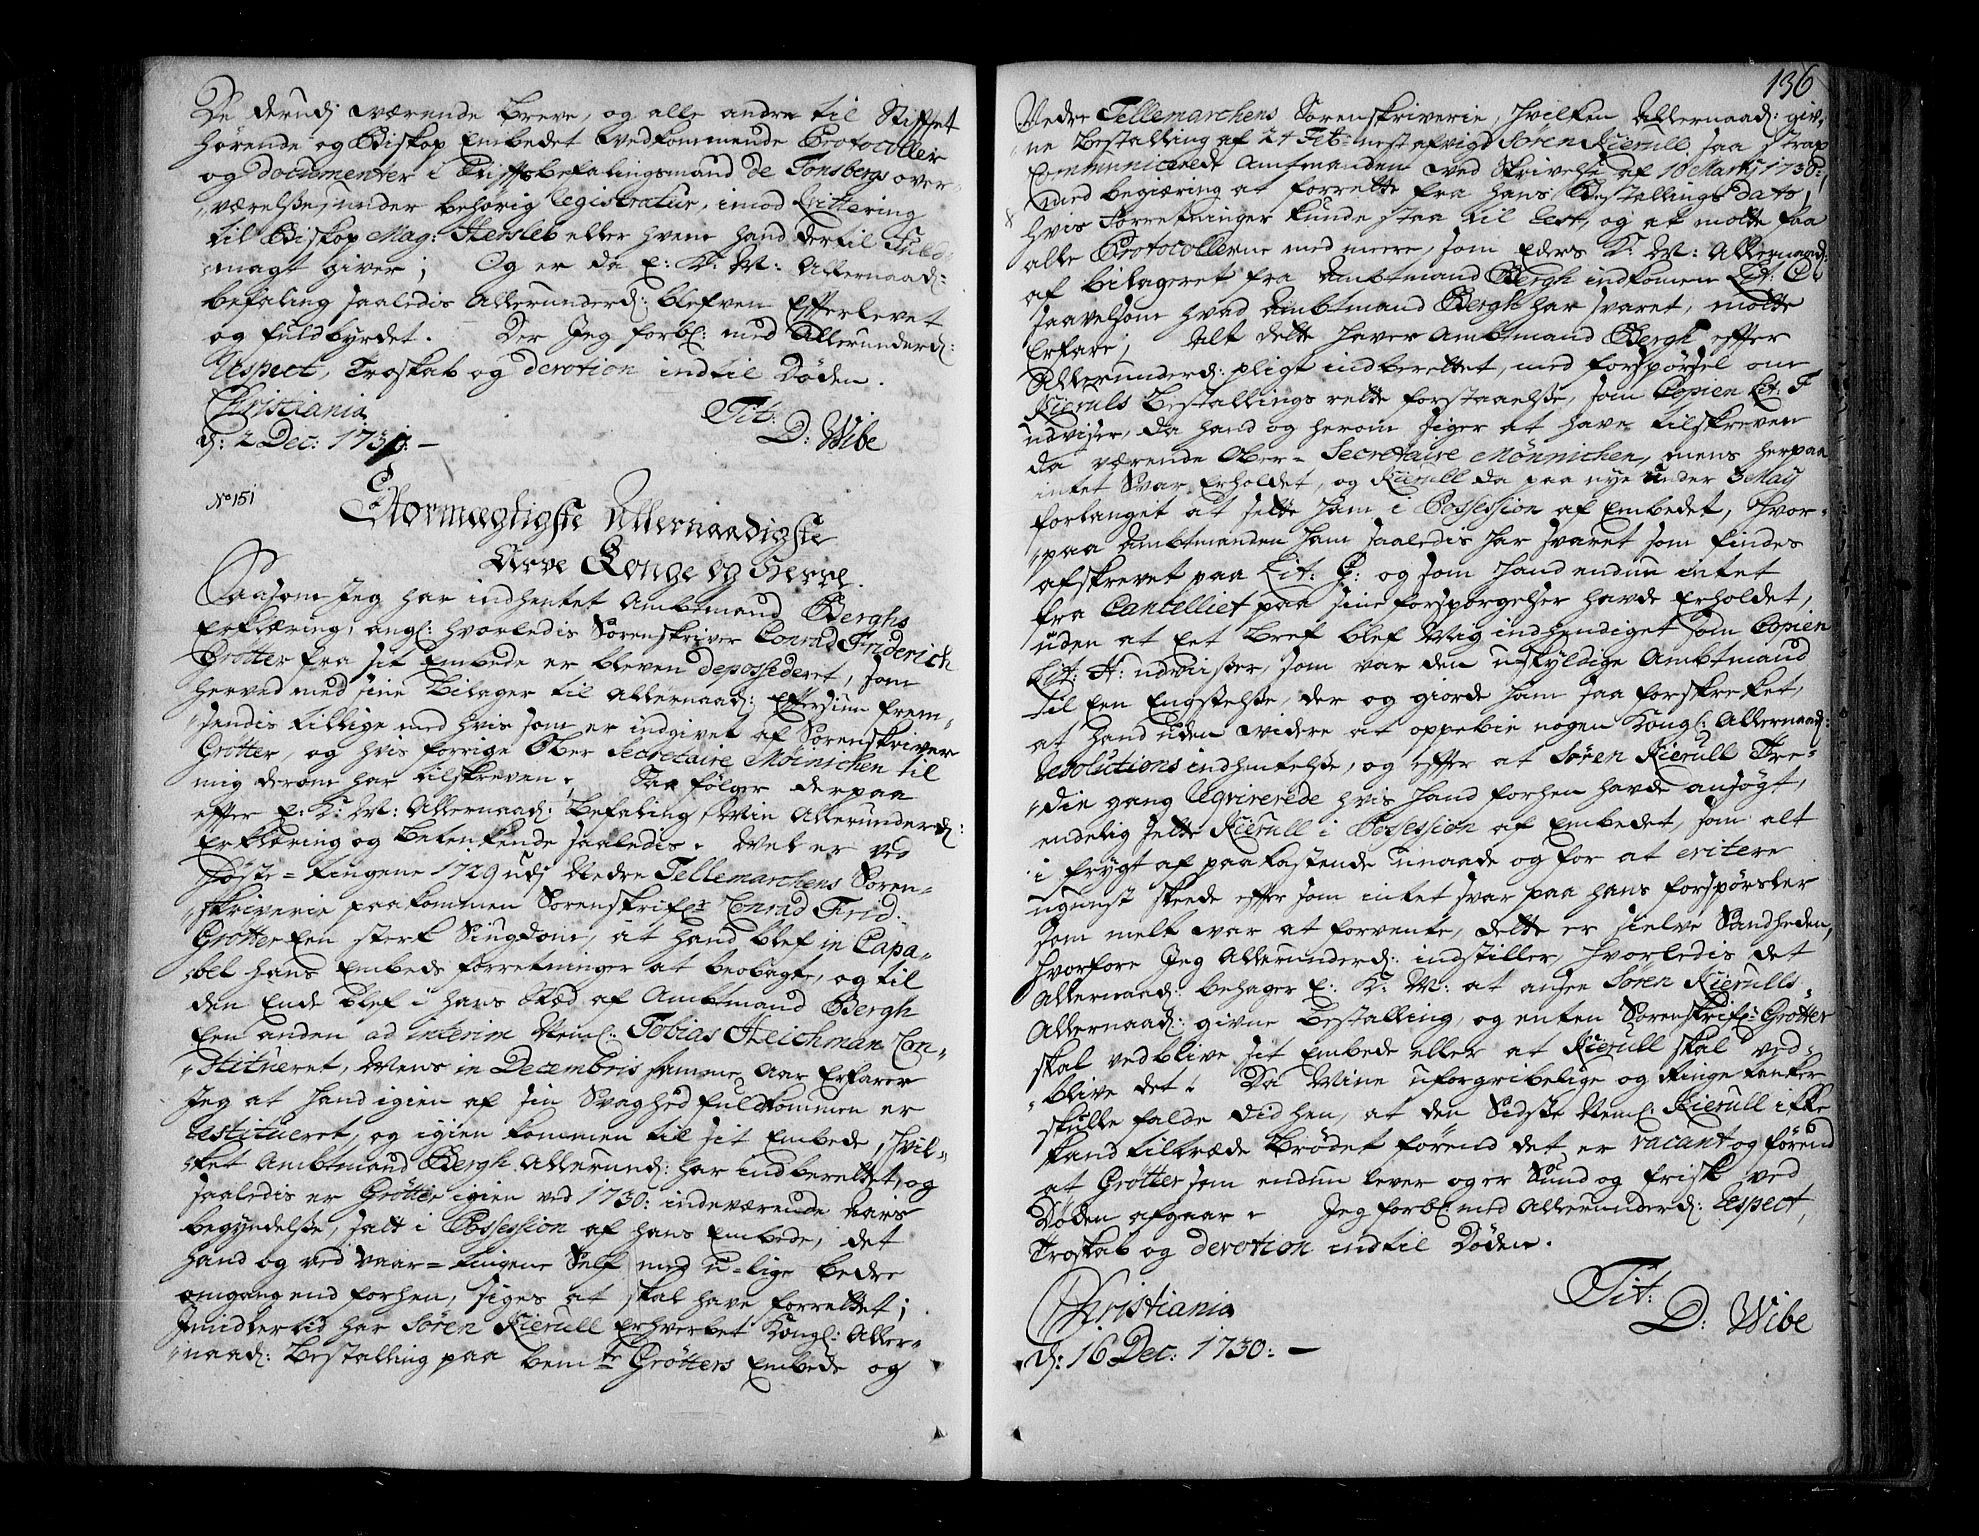 De derudj værende Breve, og alle andre til Stiftet
hørende og Biskop Embedet vedkommende Protocoller
og documenter i Stiftsbefalingsmand de Tonsbergs over-
værelse, under behørig Registratur, imod Qvittering
til Biskop Mag: Hersleb eller hvem hand dertil Fuld-
magt giver; Og er da E: K: M: Allernaad:
befaling saaledis Allerunderd: blefven Efterlevet
og fuldbyrdet. Der Jeg forbl: med Allerunderd:
Respect, Troskab og devotion indtil Døden.
Christiania Tit:
d: 2 Dec: 1730.— D: Wibe
No 151
Stormægtigste Allernaadigste
Arve Konge og Herre.
Saasom Jeg har indhentet Ambtmand Berghs
Erklæring, angl: hvorledis Sorenskriver Conrad Friderich
Grøtter fra sit Embede er bleven depossederet, som
herved med sine Bilager til Allernaad: Eftersiun frem-
sendis tillige med hvis som er indgivet af Sorenskriver
Grøtter, og hvis forrige Ober Secretaire Møinichen til
mig derom har tilskreven, Saa følger derpaa
efter E: K: M: Allernaad: Befaling Min Allerunderd:
Erklæring og Betenkende saaledis. Vel er ved
Høste-tingene 1729 udj Nedre Tellemarchens Soren-
skriverie paakommen Sorenskrifer Conrad Frid.
Grøtter Een sterk Siugdom, at hand blef in Capa-
bel hans Embeds forretninger at beobagte, og til
den Ende blef i hans Stæd af Ambtmand Bergh
Een anden ad interim Neml: Tobias Heichman Con-
stitueret, Mens in Decembris samme Aar Erfarer
Jeg at hand igien af sin Svaghed fuldkommen er
restitueret, og igien kommen til sit Embede, hvil-
ket Ambtmand Bergh Allerund: har indberettet, og
saaledis er Grøtter igien ved 1730: indeværende Aars
begyndelse, satt i Possession af hans Embede, det
hand og ved Vaar-tingene Self med u-lige bedre
omgang end forhen, siges at skal have forrettet;
Imidlertid har Søren Kierull Erhvervet Kongl: Aller-
naad: Bestalling paa bemte Grøtters Embede og
136
Nedre Tellemarchens Sorenskriverie, hvilken Allernaad: giv-
ne Bestalling af 24 Feb: nest afvigt Søren Kierull saa strax
Communicerede Amtmanden ved Skrivelse af 10 Martj 1730:
med begiæring at forrette fra hans Bestallings dato,
hvis Forretninger kunde staa til rest, og at motte faa
alle Protocollerne med mere, som Eders K: M: Allernaad:
af bilageret fra Ambtmand Bergh indkomen Lit: C:
saavelsom hvad Ambtmand Bergh har svaret, motte
Erfare, Alt dette haver Ambtmand Bergh efter
Allerunderd: pligt indberettet, med forspørsel om
Kieruls Bestallings rette forstaaelse, som Copien Lit: F
udviser, da hand og herom siger at have tilskreven
da værende Ober-Secretaire Mønnichen, mens herpaa
intet Svar Erholdet, og Kierull da paa nye under 3 May
forlanget at sette ham i Possession af Embedet, hvor-
paa Ambtmanden ham saaledis har svaret som findes
afskrevet paa Lit: G: og som hand endnu intet
fra Cantelliet paa sine forspørgelser havde Erholdet,
uden at Eet Bref blef Mig indhændiget som Copien
Lit: H: udviiser, som var den uskyldige Ambtmand
til Een Engstelse, der og giorde ham saa forskreket,
at hand uden videre at oppebie nogen Kongl: Allernaad:
resolutions indhentelse, og efter at Søren Kierull Tre-
die gang reqvirerede hvis hand forhen havde ansøgt,
endelig sette Kierull i Possession af Embedet, som alt
i frygt af paakastende unaade og for at evitere
ugunst skeede efter som intet svar paa hans forspørsler
som melt var at forvente, dette er sielve Sandheden,
hvorfore Jeg Allerunderd: indstiller, hvorledis det
Allernaad: behager E: K: M: at ansee Søren Kierulls
Allernaad: givne Bestalling, og enten Sorenskrifr: Grøtter
skal vedblive sit Embede eller at Kierull skal ved-
blive det. Da Mine uforgribelige og Ringe tanker
skulle falde did hen, at den Sidste Neml: Kierull ikke
kand tiltræde Brødet førend det er vacant og førend
at Grøtter som endnu lever og er Sund og frisk ved
Døden afgaar. Jeg forbl: med Allerunderd: respect,
Troskab og devotion indtil Døden.
Christiania Tit:
d: 16 Dec: 1730:— D: Wibe